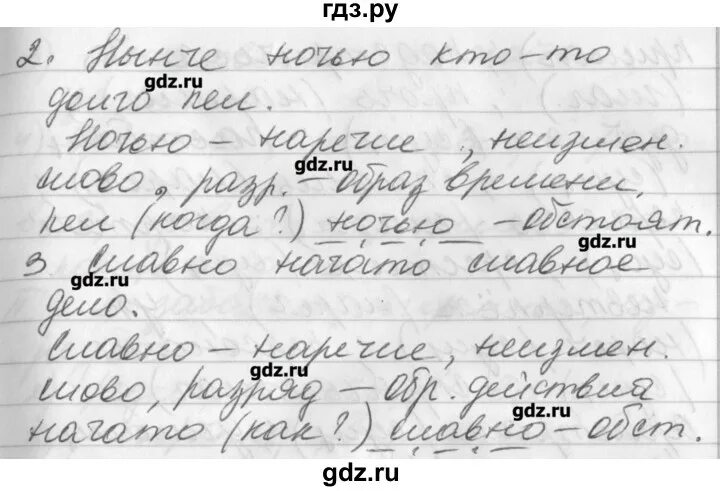 гдз.ру
2. Нынче ночью кто-то
gdz.ru gdz.ru
долго пел.
Ночью – наречие, неизмен.
gdz.ru
слово, разр. – образ времени,
пел (когда?) ночью – обстоят.
gdz.ru
3 Славно начато славное
gdz.ru
дело.
Славно – наречие, неизмен.
gdz.ru
слово, разряд – обр. действия
gdz.ru
начато (как?) славно – обст.
gdz.ru